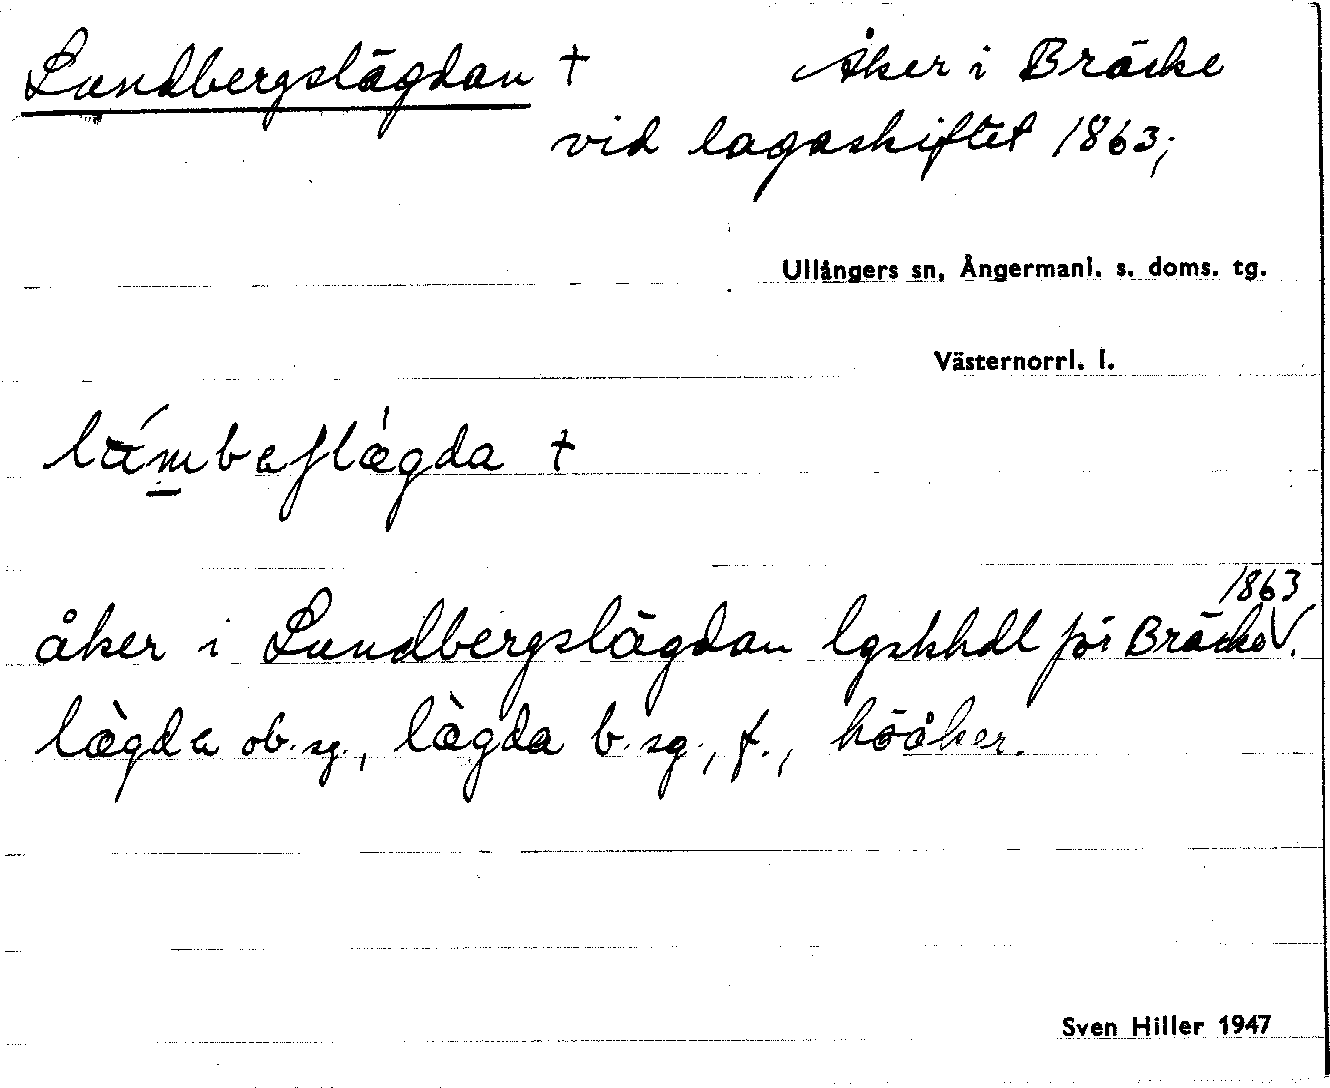 Lundbergslägdan † Åker i Bräcke
vid lagaskiftet 1863;
Ullångers sn, Ångermanl. s. doms. tg.
Västernorrl. l.
†
1863
åker i Lundbergslägdan lgskhdl för Bräcke V.
lægda ob. sg., lægda b. sg., f., höåker.
Sven Hiller 1947